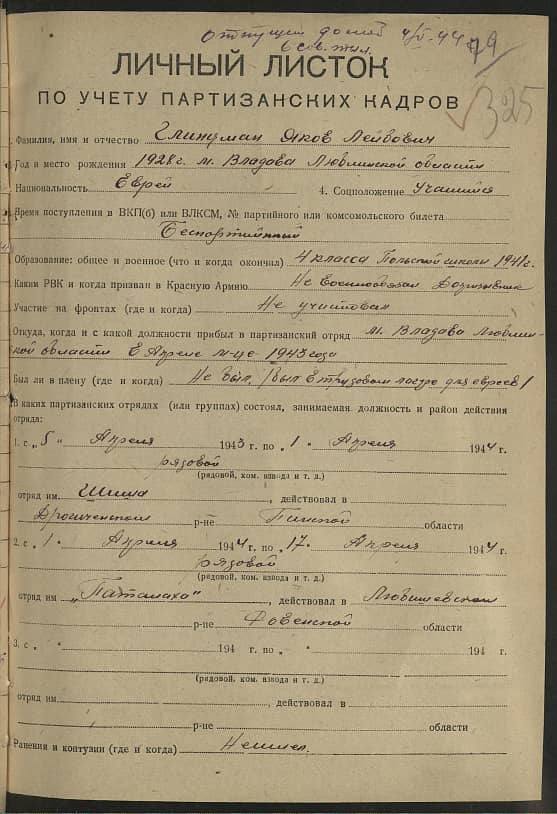 Отпущен домой 4/V-44 79
6 сов. тыл.
ЛИЧНЫЙ ЛИСТОК
ПО УЧЕТУ ПАРТИЗАНСКИХ КАДРОВ
325
Фамилия, имя и отчество Глинцман Яков Лейбович
Год и место рождения 1928 г. м. Владова Люблинской области
Национальность Еврей 4. Соцположение Учащийся
Время поступления в ВКП(б) или ВЛКСМ, № партийного или комсомольского билета
Беспартийный
Образование: общее и военное (что и когда окончил) 4 класса Польской школы 1941 г.
Каким РВК и когда призван в Красную Армию Не Военнообязан Допризывник
Участие на фронтах (где и когда) Не участвовал
Откуда, когда и с какой должности прибыл в партизанский отряд м. Владова Люблин-
ской области В Апреле м-це 1943 года
Был ли в плену (где и когда) Не был. /был в трудовом лагере для евреев/
В каких партизанских отрядах (или группах) состоял, занимаемая должность и район действия
отряда:
1. с „5" Апреля 1943 г. по „1" Апреля 1944 г.
рядовой
(рядовой, ком. взвода и т. д.)
отряд им. Шиша, действовал в
р-не Пинской области
2. с „1" Апреля 1944 г. по „17" Апреля 1944 г.
рядовой
(рядовой, ком. взвода и т. д.)
отряд им „Паталаха", действовал в Любишевском
р-не Ровенской области
3. с „ " 194 г. по „ " 194 г.
(рядовой, ком. взвода и т. д.)
отряд им , действовал в
р-не области
Ранения и контузии (где и когда) Не имел.